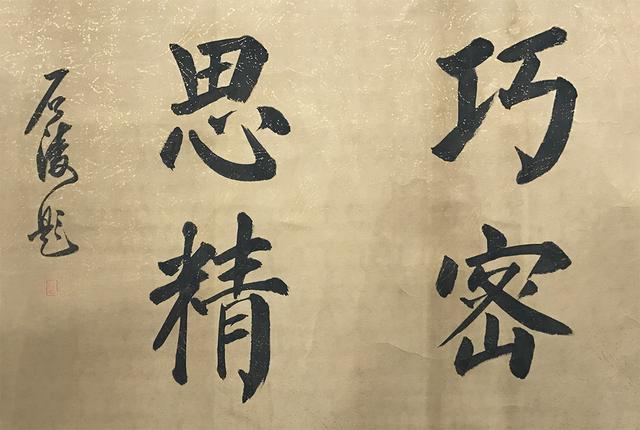 巧密
思精
石 題